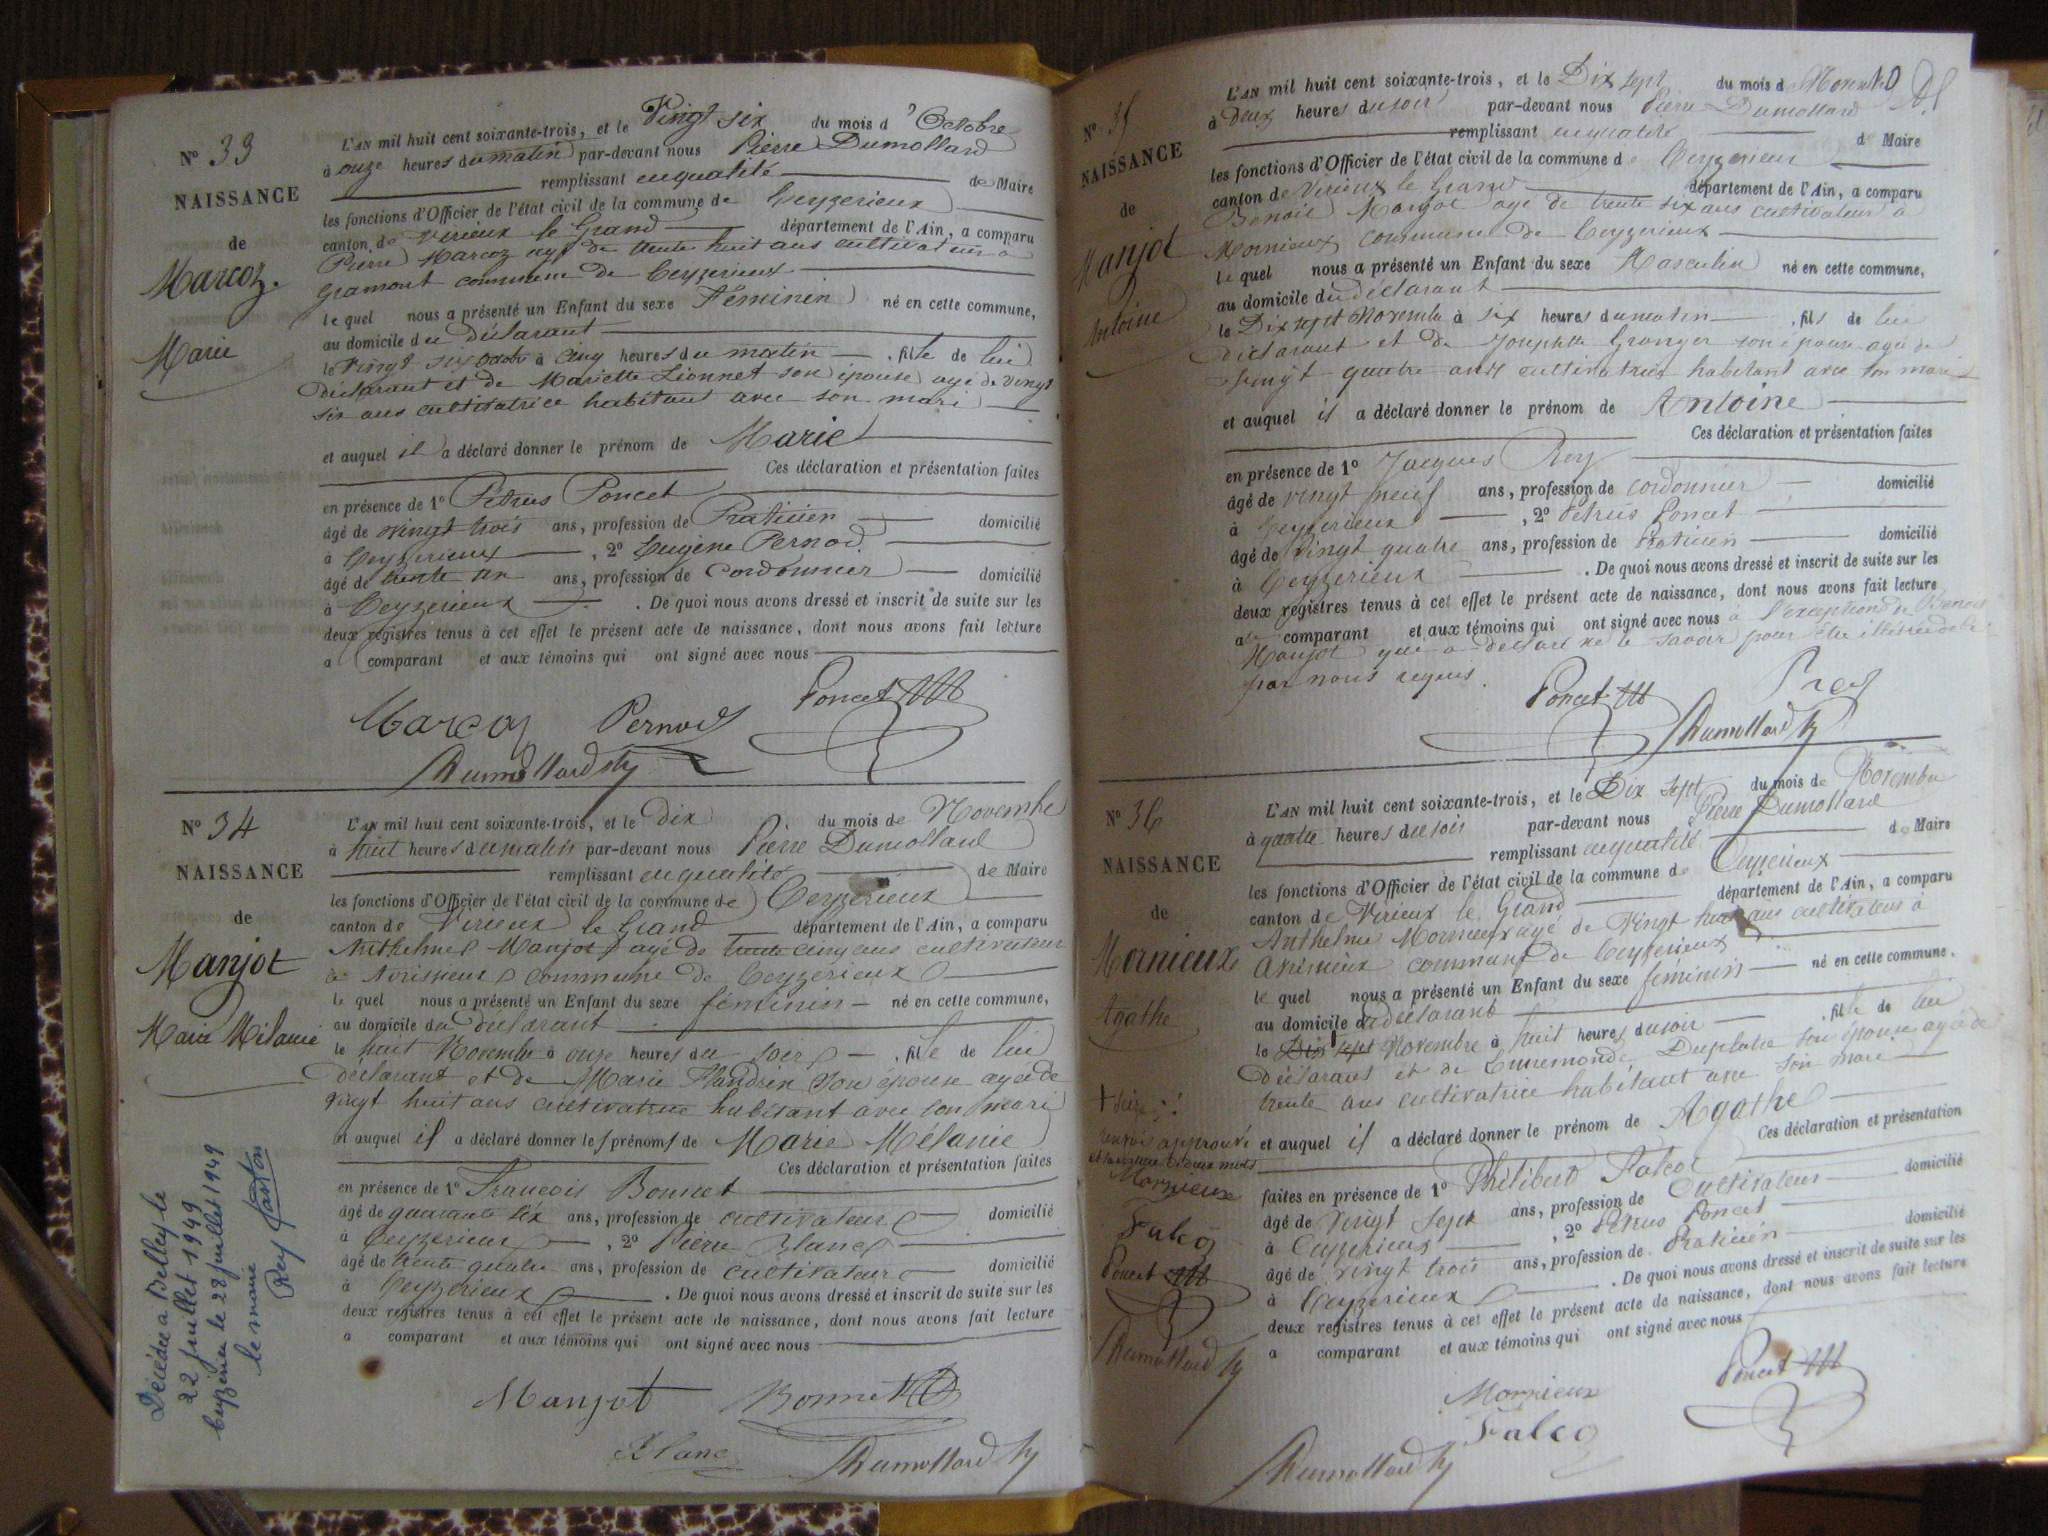 N° 33
NAISSANCE
de
Marcoz
Marie
L'AN mil huit cent soixante-trois, et le Vingt six du mois d'Octobre
à onze heures du matin par-devant nous Pierre Dumollard
remplissant en qualité de Maire
les fonctions d'Officier de l'état civil de la commune de Ceyzerieux
canton de Virieux le Grand département de l'Ain, a comparu
Pierre Marcoz agé de trente huit ans cultivateur à
Gramont commune de Ceyzerieux
lequel nous a présenté un Enfant du sexe Féminin né en cette commune,
au domicile du Déclarant
le Vingt six octobre à cinq heures du matin, fille de lui
Déclarant et de Mariette Lionnet son épouse agé de vingt
six ans cultivatrice habitant avec son mari
et auquel il a déclaré donner le prénom de Marie
Ces déclaration et présentation faites
en présence de 1° Pétrus Poncet
âgé de vingt trois ans, profession de Praticien domicilié
à Ceyzerieux, 2° Eugène Pernod
âgé de trente un ans, profession de Cordonnier domicilié
à Ceyzerieux. De quoi nous avons dressé et inscrit de suite sur les
deux registres tenus à cet effet le présent acte de naissance, dont nous avons fait lecture
a comparant et aux témoins qui ont signé avec nous
Marcoz Pernod Poncet
Dumollard
N° 34
NAISSANCE
de
Manjot
Marie Mélanie
L'AN mil huit cent soixante-trois, et le Dix du mois de Novembre
à huit heures du matin par-devant nous Pierre Dumollard
remplissant en qualité de Maire
les fonctions d'Officier de l'état civil de la commune de Ceyzerieux
canton de Virieux le Grand département de l'Ain, a comparu
Anthelme Manjot agé de trente cinq ans cultivateur
à Avrissieux commune de Ceyzerieux
lequel nous a présenté un Enfant du sexe féminin né en cette commune,
au domicile du déclarant
le huit Novembre à onze heures du soir, fille de lui
déclarant et de Marie Flandrin son épouse agée de
vingt huit ans cultivatrice habitant avec son mari
et auquel il a déclaré donner les prénoms de Marie Mélanie
Ces déclaration et présentation faites
en présence de 1° François Bonnet
âgé de quarante six ans, profession de cultivateur domicilié
à Ceyzerieux, 2° Pierre Blanc
âgé de trente quatre ans, profession de cultivateur domicilié
à Ceyzerieux. De quoi nous avons dressé et inscrit de suite sur les
deux registres tenus à cet effet le présent acte de naissance, dont nous avons fait lecture
a comparant et aux témoins qui ont signé avec nous
Manjot Bonnet
Blanc Dumollard
Décédée à Belley le
22 juillet 1949
Ceyzérieu le 28 juillet 1949
le maire
Rey Gaston
N° 35
NAISSANCE
de
Manjot
Antoine
L'AN mil huit cent soixante-trois, et le Dix sept du mois d Novembre
à Deux heures du soir par-devant nous Pierre Dumollard
remplissant en qualité de Maire
les fonctions d'Officier de l'état civil de la commune de Ceyzerieux
canton de Virieux le Grand département de l'Ain, a comparu
Benoit Manjot agé de trente six ans cultivateur à
Mornieux commune de Ceyzerieux
lequel nous a présenté un Enfant du sexe Masculin né en cette commune,
au domicile du déclarant
le Dix sept Novembre à six heures du matin, fils de lui
déclarant et de Josephte Granger son épouse agée de
vingt quatre ans cultivatrice habitant avec son mari
et auquel il a déclaré donner le prénom de Antoine
Ces déclaration et présentation faites
en présence de 1° Jacques Rey
âgé de vingt neuf ans, profession de cordonnier domicilié
à Ceyzerieux, 2° Petrus Poncet
âgé de Vingt quatre ans, profession de Praticien domicilié
à Ceyzerieux. De quoi nous avons dressé et inscrit de suite sur les
deux registres tenus à cet effet le présent acte de naissance, dont nous avons fait lecture
au comparant et aux témoins qui ont signé avec nous à l'exception de Benoit
Manjot qui a déclaré ne le savoir pour être illitéré de ce
par nous requis.
Poncet Rey
Dumollard
N° 36
NAISSANCE
de
Mornieux
Agathe
L'AN mil huit cent soixante-trois, et le Dix sept du mois de Novembre
à quatre heures du soir par-devant nous Pierre Dumollard
remplissant en qualité de Maire
les fonctions d'Officier de l'état civil de la commune de Ceyzerieux
canton de Virieux le Grand département de l'Ain, a comparu
Anthelme Mornieux agé de Vingt huit ans cultivateur à
Avrissieux commune de Ceyzerieux
lequel nous a présenté un Enfant du sexe féminin né en cette commune,
au domicile du déclarant
le Dix sept Novembre à huit heures du soir, fille de lui
déclarant et de Ennemonde Duplatre son épouse agée de
trente ans cultivatrice habitant avec son mari
et auquel il a déclaré donner le prénom de Agathe
Ces déclaration et présentation
faites en présence de 1° Philibert Falco
âgé de vingt sept ans, profession de Cultivateur domicilié
à Ceyzerieux, 2° Petrus Poncet
âgé de vingt trois ans, profession de Praticien domicilié
à Ceyzerieux. De quoi nous avons dressé et inscrit de suite sur les
deux registres tenus à cet effet le présent acte de naissance, dont nous avons fait lecture
a comparant et aux témoins qui ont signé avec nous
renvoi approuvé
mots
Mornieux
Falco
Poncet
Dumollard
Mornieux Poncet
Falco
Dumollard